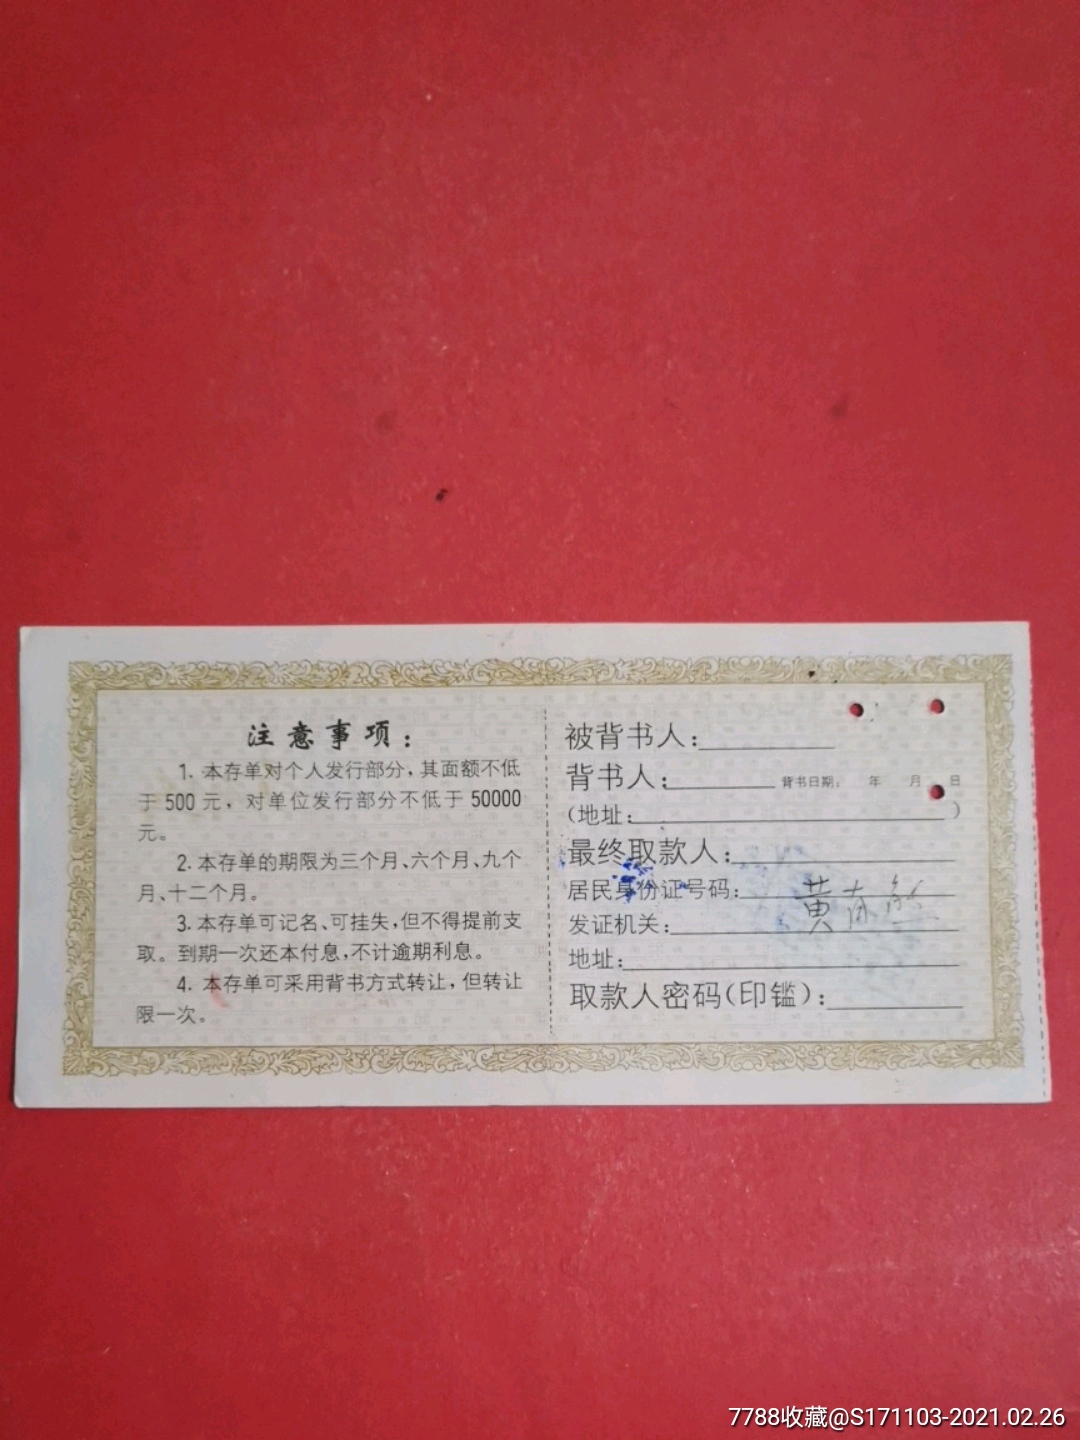 注意事项：
1. 本存单对个人发行部分，其面额不低
于 500 元，对单位发行部分不低于 50000
元。
2. 本存单的期限为三个月、六个月、九个
月、十二个月。
3. 本存单可记名、可挂失，但不得提前支
取。到期一次还本付息，不计逾期利息。
4. 本存单可采用背书方式转让，但转让
限一次。
被背书人：
背书人： 背书日期： 年 月 日
（地址： ）
最终取款人：
居民身份证号码：
黄
发证机关：
地址：
取款人密码（印鑑）：
7788收藏@S171103-2021.02.26